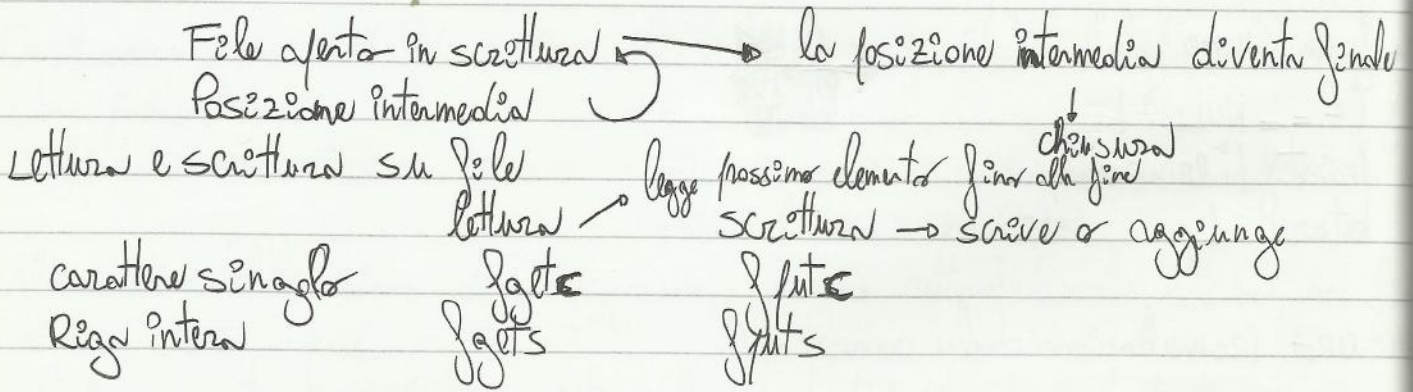 File aperto in scrittura → la posizione intermedia diventa finale
Posizione intermedia
↓
chiusura
Lettura e scrittura su file
lettura → legge prossimo elemento fino alla fine
scrittura → scrive o aggiunge
carattere singolo fgetc fputc
Riga intera fgets fputs